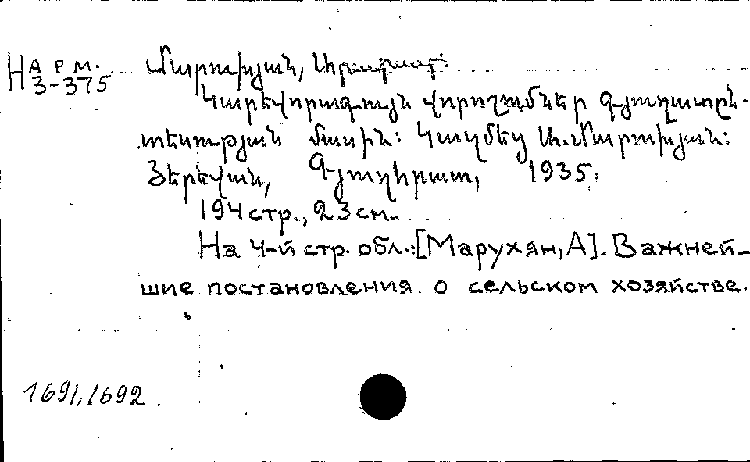 Н АРМ. 3-375
Մարուխյան, Արարատ
Կարևորագույն վորոշումներ գյուղատըն-
տեսության մասին: Կազմեց Ա. Մարուխյան:
Յերեվան, Գյուղհրատ, 1935.
194 стр., 23 см.
На 4-й стр. обл.: [Марухян, А]. Важней-
шие постановления о сельском хозяйстве.
1691, 1692